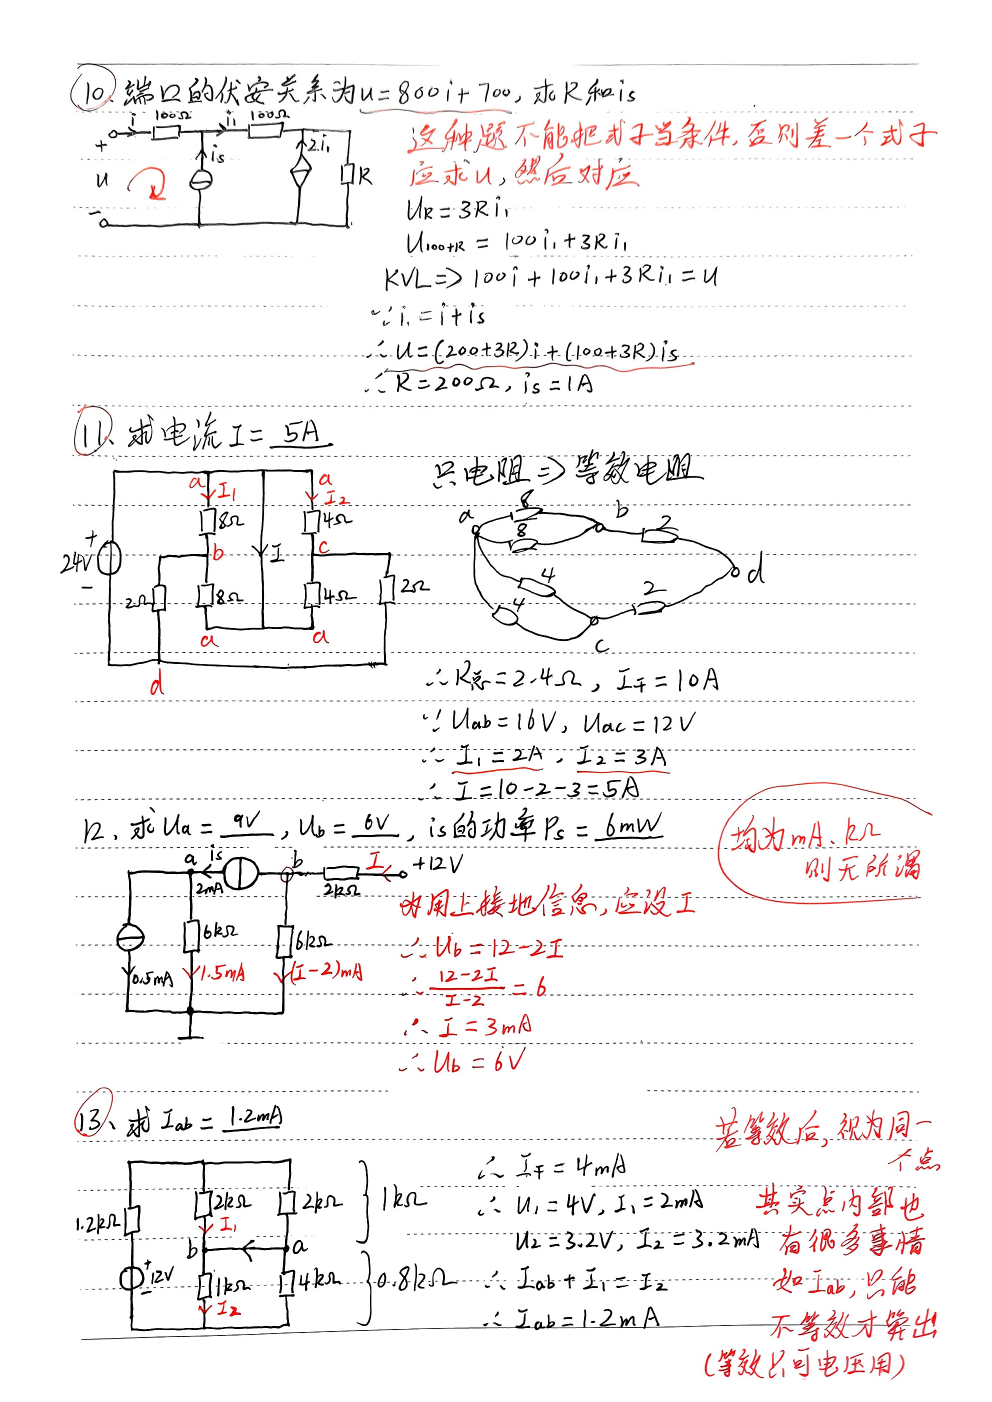 10、端口的伏安关系为u=800i+700,求R和is
i 100Ω i₁ 100Ω
+ u − is 2i₁ R
这种题不能把式子当条件,否则差一个式子
应求u,然后对应
UR=3Ri₁
U100+R = 100i₁+3Ri₁
KVL=> 100i+100i₁+3Ri₁=u
∵i₁=i+is
∴u=(200+3R)i+(100+3R)is
∴R=200Ω, is=1A
11、求电流I= 5A
只电阻=>等效电阻
a I₁ a I₂
8Ω 4Ω
24V + − b I c
2Ω 8Ω 4Ω 2Ω
a a
d
a 8 b 2
8
4 d
4 2
c
∴R总=2.4Ω, I干=10A
∵Uab=16V, Uac=12V
∴I₁=2A, I₂=3A
∴I=10-2-3=5A
12、求Ua= 9V, Ub= 6V, is的功率Ps= 6mW
均为mA、kΩ
则无所谓
a is b I +12V
2mA 2kΩ
6kΩ 6kΩ
0.5mA 1.5mA (I-2)mA
用上接地信息,应设I
∴Ub=12-2I
∴(12-2I)/(I-2)=6
∴I=3mA
∴Ub=6V
13、求Iab= 1.2mA
2kΩ 2kΩ 1kΩ
1.2kΩ I₁
b a
+ 12V − 1kΩ 4kΩ 0.8kΩ
I₂
∴I干=4mA
∴U₁=4V, I₁=2mA
U₂=3.2V, I₂=3.2mA
∴Iab+I₁=I₂
∴Iab=1.2mA
若等效后,视为同一
个点
其实点内部也
有很多事情
如Iab,只能
不等效才算出
(等效只可电压用)